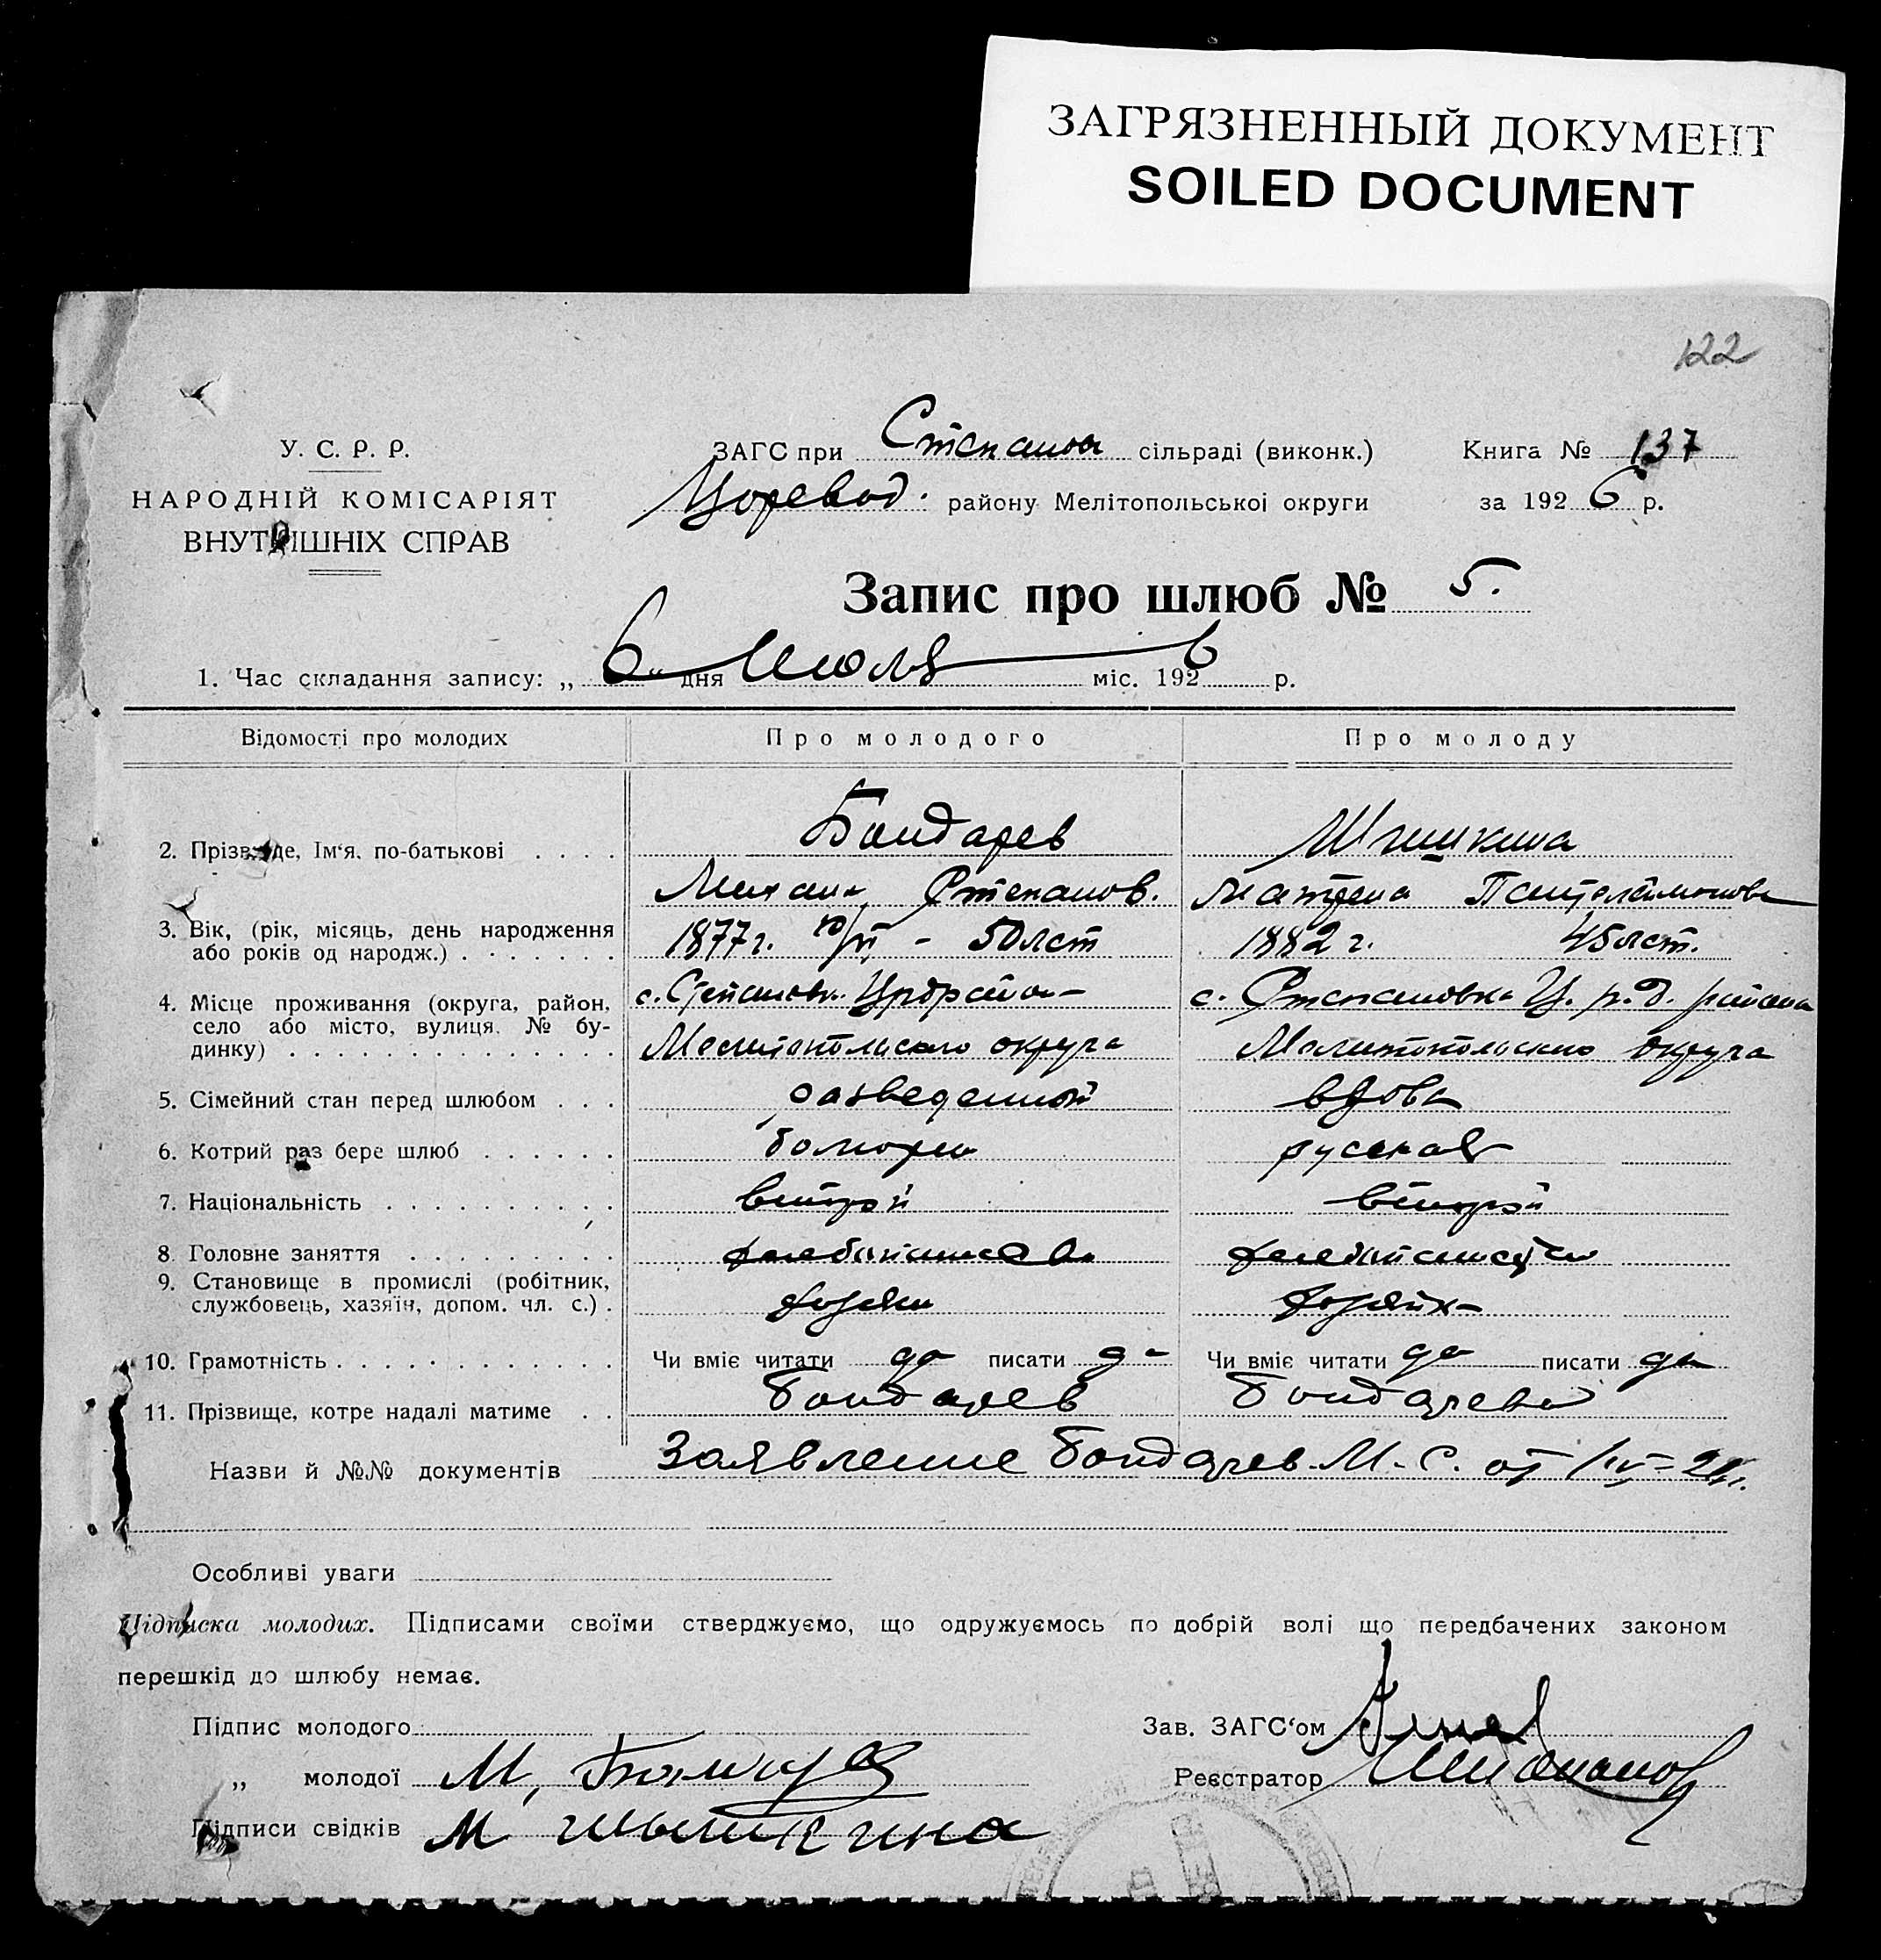 ЗАГРЯЗНЕННЫЙ ДОКУМЕНТ
SOILED DOCUMENT
122
У. С. Р. Р.
НАРОДНІЙ КОМІСАРІЯТ
ВНУТРІШНІХ СПРАВ
ЗАГС при Степанов сільраді (виконк.) Книга № 137
району Мелітопольської округи за 1926 р.
Запис про шлюб № 5.
1. Час складання запису: „ 6 “ дня Июля міс. 1926 р.
Відомості про молодих Про молодого Про молоду
2. Прізвище, Ім‘я, по-батькові . . . . Бондарев Шишкина
Михаил Степанов. Матрена Пантелеймонова
3. Вік, (рік, місяць, день народження
або років од народж.) . . . . . . . 1877 г. - 50 лет 1882 г. 45 лет.
4. Місце проживання (округа, район,
село або місто, вулиця, № бу-
динку) . . . . . . . . . . . . . .
с. Степановка с. Степановка района
Мелитопольского округа Мелитопольского округа
5. Сімейний стан перед шлюбом . . . разведенной вдова
6. Котрий раз бере шлюб . . . . . . русская
7. Національність . . . . . . . . . . второй второй
8. Головне заняття . . . . . . . . .
9. Становище в промислі (робітник,
службовець, хазяїн, допом. чл. с.) .
10. Грамотність . . . . . . . . . . . . Чи вміє читати да писати да Чи вміє читати да писати да
11. Прізвище, котре надалі матиме . . Бондарев Бондарева
Назви й №№ документів Заявление Бондарев М. С. от
Особливі уваги
Підписка молодих. Підписами своїми стверджуємо, що одружуємось по добрій волі що передбачених законом
перешкід до шлюбу немає.
Підпис молодого Зав. ЗАГС‘ом
„ молодої М. Реєстратор
Підписи свідків М шышкина